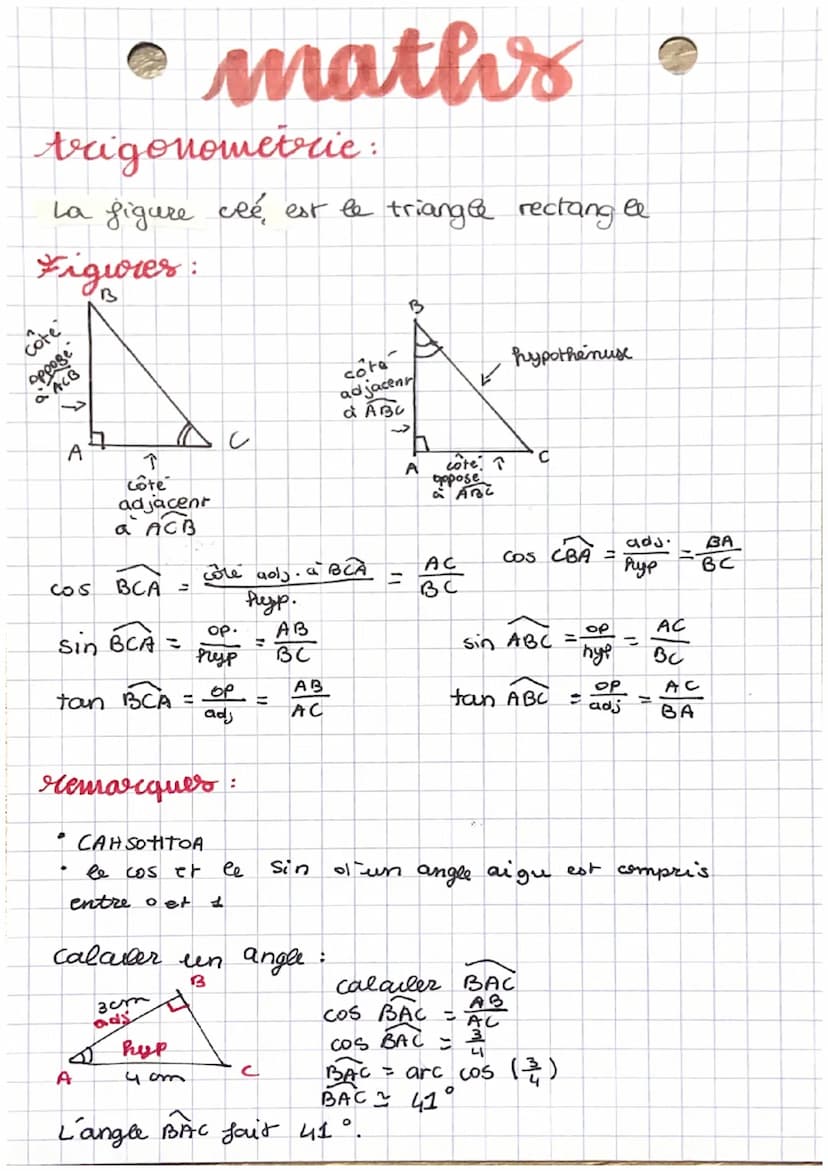 maths
trigonométrie :
La figure clé, est le triangle rectangle
Figures :
B
côté
opposé
à ACB
A
C
côté
adjacent
à ACB
B
hypothénuse
côté
adjacent
à ABC
A
C
côté
opposé
à ABC
cos BCA = côté adj. à BCA / hyp. = AC / BC
cos CBA = adj. / hyp = BA / BC
sin BCA = op. / hyp = AB / BC
sin ABC = op / hyp = AC / BC
tan BCA = op / adj = AB / AC
tan ABC = op / adj = AC / BA
remarques :
• CAHSOHTOA
• le cos et le sin d'un angle aigu est compris
entre 0 et 1
calculer un angle :
B
3cm
adj
hyp
A
4 cm
C
calculer BAC
cos BAC = AB / AC
cos BAC = 3 / 4
BAC = arc cos (3/4)
BAC ≃ 41°
L'angle BAC fait 41°.